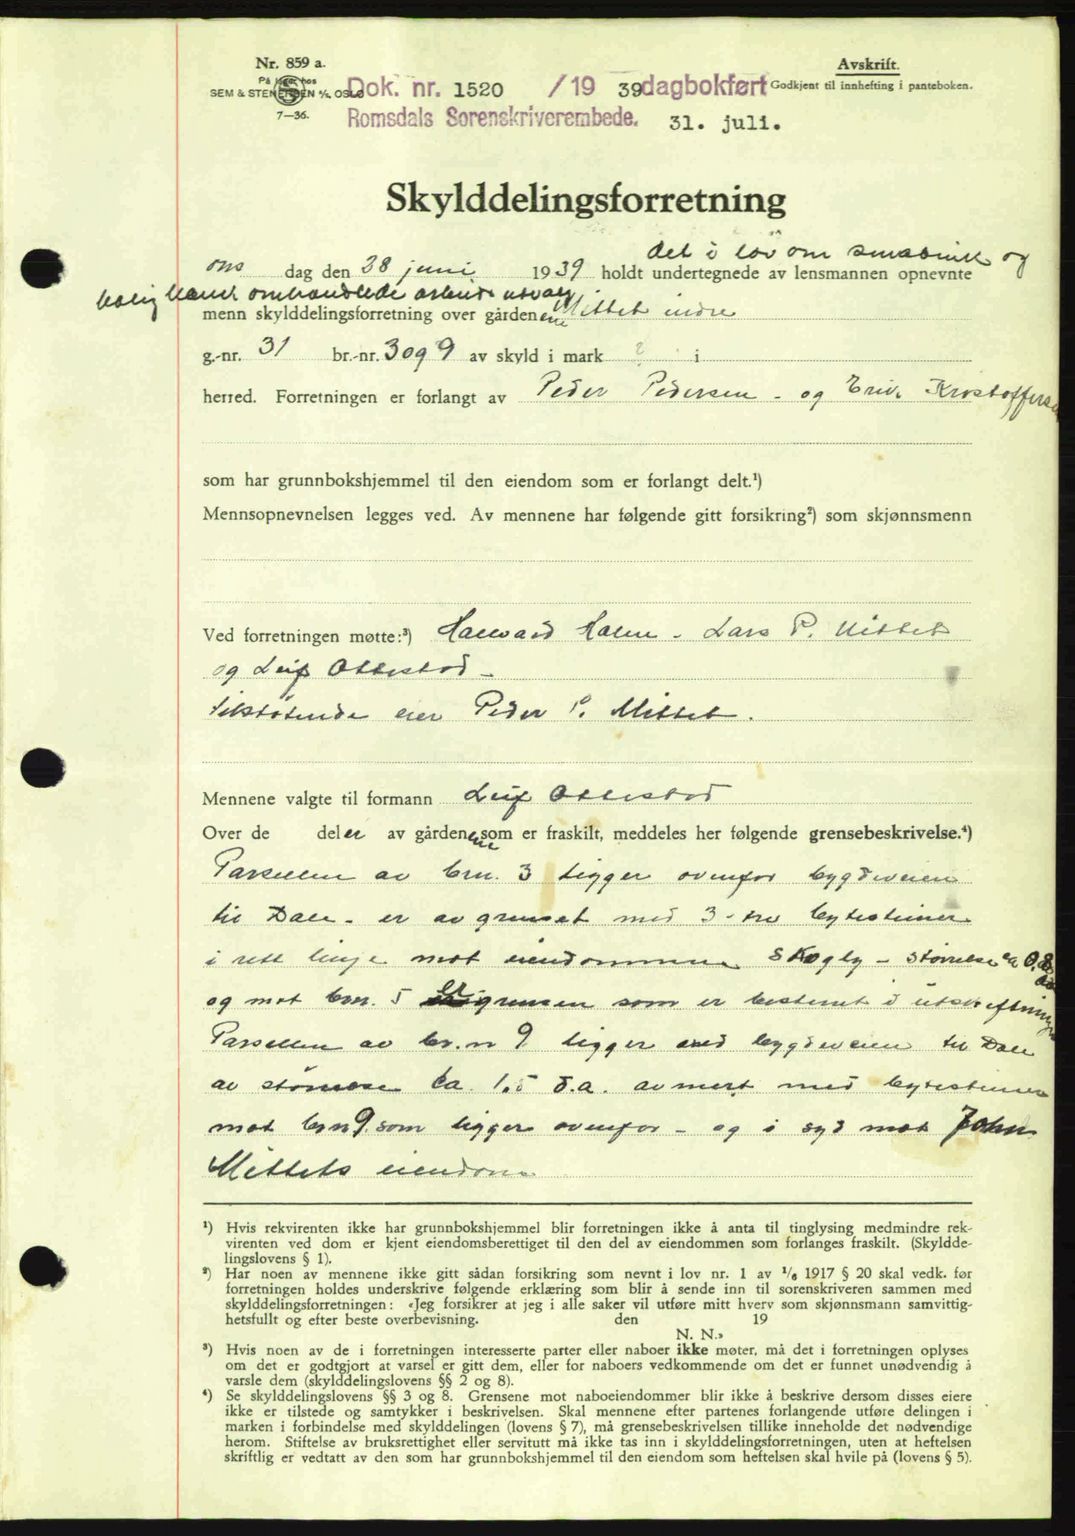 Nr. 859 a.
På lager hos
SEM & STENERSEN A/S. OSLO
7—36.
Avskrift.
Godkjent til innhefting i panteboken.
Dok. nr. 1520 /19 39 dagbokført
Romsdals Sorenskriverembede. 31. juli.
Skylddelingsforretning
det i lov om småbruk og
ons dag den 28 juni 1939 holdt undertegnede av lensmannen opnevnte
bolig bruk omhandlede arbeidsutvalg
menn skylddelingsforretning over gårdenene Mittet indre
g.-nr. 31 br.-nr. 3 og 9 av skyld i mark i
herred. Forretningen er forlangt av Peder Pedersen - og Eriv. Kristoffersen
som har grunnbokshjemmel til den eiendom som er forlangt delt.¹)
Mennsopnevnelsen legges ved. Av mennene har følgende gitt forsikring²) som skjønnsmenn
Ved forretningen møtte:³) Hallvard Holm - Lars P. Mittet
og Leif Ottestad -
tilstøtende eier Peder P. Mittet.
Mennene valgte til formann Leif Ottestad
Over de deler av gårdenene som er fraskilt, meddeles her følgende grensebeskrivelse.⁴)
Parsellen av brn. 3 ligger ovenfor bygdeveien
til Dale - er avgrenset med 3 - tre bytesteiner
i rett linje mot eiendommen Skogly - størrelse ca 0.8
og mot brn. 5 er grensen som er bestemt i utskiftning
Parsellen av br.n 9 ligger ved bygdeveien til Dale
av størrelse ca. 1.5 d.a. avmert med bytesteiner
mot brn 9. som ligger ovenfor - og i syd mot John
Mittets eiendom
¹) Hvis rekvirenten ikke har grunnbokshjemmel blir forretningen ikke å anta til tinglysing medmindre rek-
virenten ved dom er kjent eiendomsberettiget til den del av eiendommen som forlanges fraskilt. (Skyldde-
lingslovens § 1).
²) Har noen av mennene ikke gitt sådan forsikring som nevnt i lov nr. 1 av ¹/₆ 1917 § 20 skal vedk. før
forretningen holdes underskrive følgende erklæring som blir å sende inn til sorenskriveren sammen med
skylddelingsforretningen: «Jeg forsikrer at jeg i alle saker vil utføre mitt hverv som skjønnsmann samvittig-
hetsfullt og efter beste overbevisning. den 19
N. N.»
³) Hvis noen av de i forretningen interesserte parter eller naboer ikke møter, må det i forretningen oplyses
om det er godtgjort at varsel er gitt dem, eller for naboers vedkommende om det er funnet unødvendig å
varsle dem (skylddelingslovens §§ 2 og 8).
⁴) Se skylddelingslovens §§ 3 og 8. Grensene mot naboeiendommer blir ikke å beskrive dersom disses eiere
ikke er tilstede og samtykker i beskrivelsen. Skal mennene efter partenes forlangende utføre delingen i
marken i forbindelse med skylddelingen (lovens § 7), må grensebeskrivelsen tillike inneholde det nødvendige
herom. Stiftelse av bruksrettighet eller servitutt må ikke tas inn i skylddelingsforretningen, uten at heftelsen
skriftlig er vedtatt av den som har grunnbokshjemmel til den eiendom som heftelsen skal hvile på (lovens § 5).